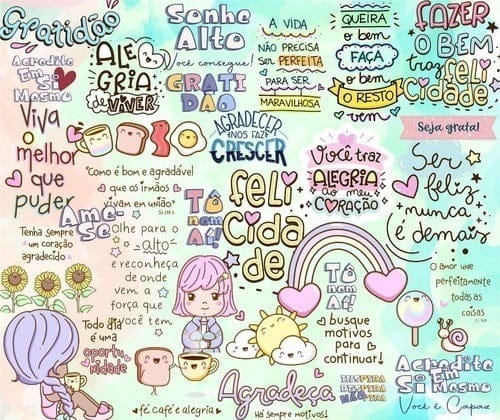 Gratidão
Acredite
Em Si
Mesmo
Viva
o
melhor
que
puder
ALE
GRIA
de VIVER
Sonhe
Alto
você consegue!
GRATI
DÃO
A VIDA
NÃO PRECISA
SER PERFEITA
PARA SER
MARAVILHOSA
QUEIRA
o bem
FAÇA
o bem
O RESTO
vem
FAZER
O BEM
traz
feli
cidade
Seja grata!
AGRADECER
NOS FAZ
CRESCER
"Como é bom e agradável
que os irmãos
vivam em união"
Você traz
ALEGRIA
ao meu
CORAÇÃO
Ser
feliz
nunca
é demais
Ame-
se
Tenha sempre
um coração
agradecido
Olhe para o
alto
e reconheça
de onde
vem a
força que
você tem
Tô
nem
Aí!
feli
cida
de
Tô
nem
Aí!
busque
motivos
para
continuar!
O amor une
perfeitamente
todas
as
coisas
Todo dia
é uma
oportu
nidade
fé café e alegria
Agradeça
Há sempre motivos!
INSPIRA
RESPIRA
NÃO PIRA
Acredite
Em
Si
Mesmo
Você é Capaz